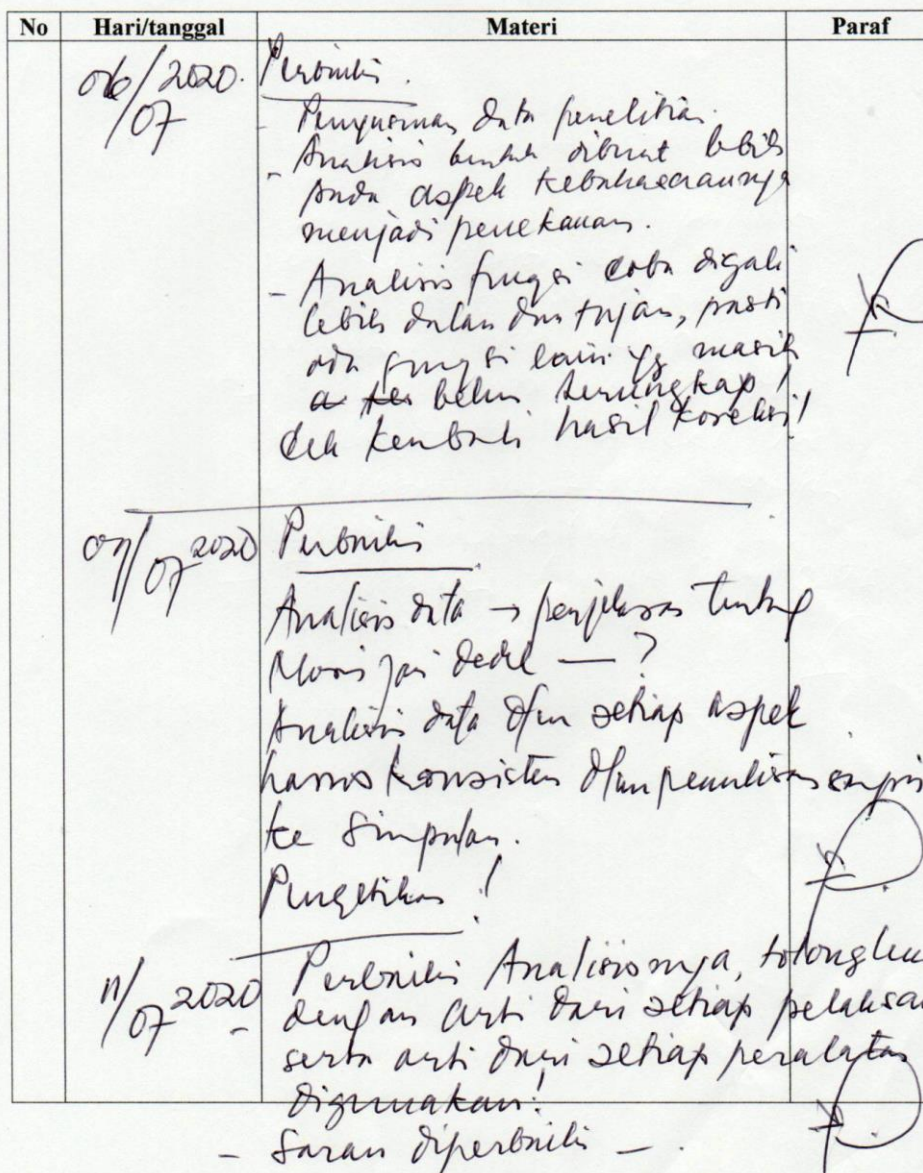 No Hari/tanggal Materi Paraf
06/07 2020. Perbaiki.
- Penyusunan data penelitian.
- Analisis bentuk dibuat lebih
pada aspek kebahasaannya
menjadi penekanan.
- Analisis fungsi coba digali
lebih dalam dan tajam, pasti
ada fungsi lain yg masih
belum terungkap!
Cek kembali hasil koreksi!
07/07 2020 Perbaiki
Analisis data → penjelasan tentang
?
Analisis data dan setiap aspek
harus konsisten dlm penulisan sampai
ke simpulan.
Pengetikan!
11/07 2020 - Perbaiki Analisisnya,
dengan arti dari setiap
serta arti dari setiap peralatan
digunakan!
- Saran diperbaiki -.